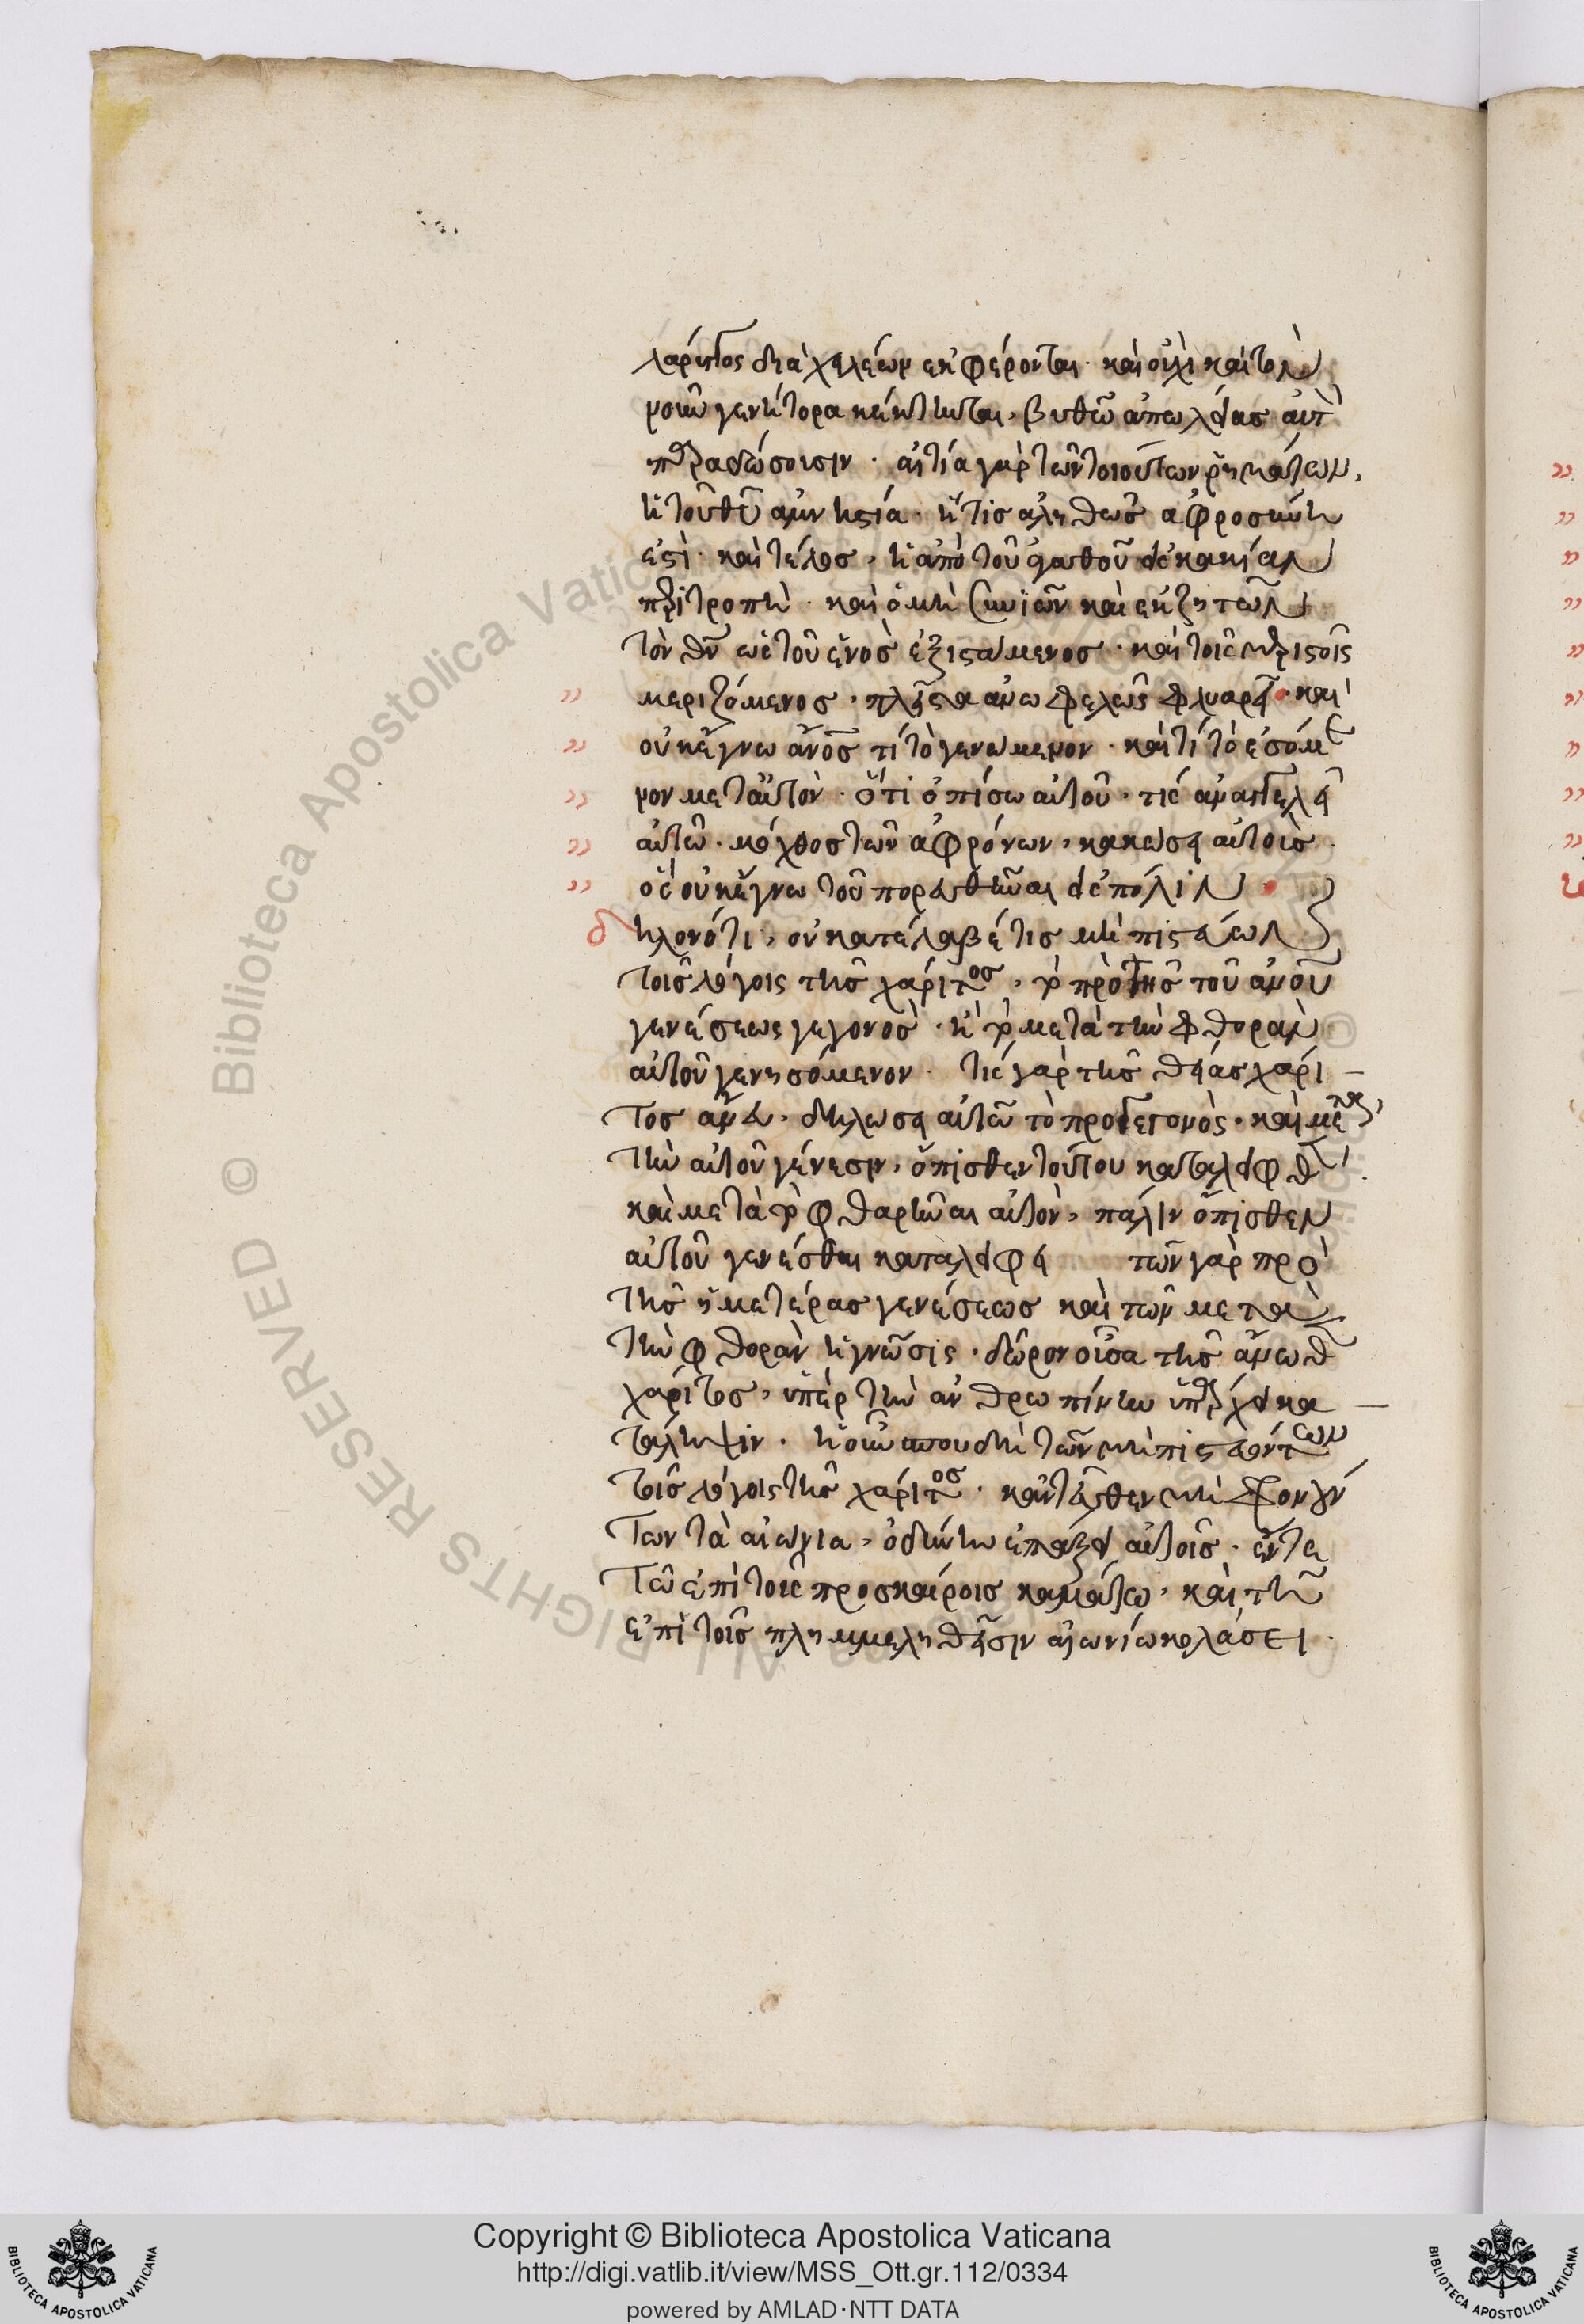 λάρυγγος διὰ χειλέων ἐκφέρονται· καὶ οὐχὶ καὶ τὸν
νοῦν γεννήτορα κέκτηνται, βυθῶ ἀπωλείας αὐτὸν
παραδώσουσιν· αἰτία γὰρ τῶν τοιούτων ῥημάτων,
ἡ τοῦ θυ ἀμνηστία· ἥτις ἀληθῶς ἀφροσύνη
ἐστί· καὶ τέλος, ἡ ἀπὸ τοῦ ἀγαθοῦ εἰς κακίαν
περιτροπή· καὶ ὁ μὴ συνιῶν καὶ ἐκζητῶν
τὸν θν ὡς τοῦ ἑνὸς ἐξιστάμενος· καὶ τοῖς περισσοῖς
μεριζόμενος, πλεῖστα ἀνωφελῶς φλυαρεῖ· καὶ
οὐκ ἔγνω ἄνος τί τὸ γενόμενον· καὶ τί τὸ ἐσόμε
νον μετ' αὐτόν· ὅτι ὀπίσω αὐτοῦ, τίς ἀναγγελεῖ
αὐτῶ· μόχθος τῶν ἀφρόνων, κακώσει αὐτούς·
ὃς οὐκ ἔγνω τοῦ πορευθῆναι εἰς πόλιν·
δηλονότι, οὐ κατέλαβέ τις μὴ πιστεύων
τοῖς λόγοις τῆς χάριτος, τὸ πρὸ τῆς τοῦ ἀνου
γενέσεως γεγονός· ἢ τὸ μετὰ τὴν φθορὰν
αὐτοῦ γενησόμενον· τίς γὰρ τῆς θείας χάρι
τος ἄνευ, δηλώσει αὐτῶ τὸ προγεγονός· καὶ μετὰ
τὴν αὐτοῦ γένεσιν, ὄπισθεν τούτου καταλειφθέν·
καὶ μετὰ τὸ φθαρῆναι αὐτόν, πάλιν ὄπισθεν
αὐτοῦ γενέσθαι καταλείφει τῶν γὰρ πρὸ
τῆς ἡμετέρας γενέσεως καὶ τῶν μετὰ
τὴν φθορὰν ἡ γνῶσις· δῶρον οὖσα τῆς ἄνωθεν
χάριτος, ὑπὲρ τὴν ἀνθρωπίνην ὑπάρχει κα
τάληψιν· ἡ οὖν σπουδὴ τῶν μὴ πιστευόντων
τοῖς λόγοις τῆς χάριτος· κἀντεῦθεν μὴ φρονούν
των τὰ αἰώνια, ὀδύνην ἐπάξει αὐτοῖς· ἔν τε
τῶ ἐπὶ τοῖς προσκαίροις καμάτω, καὶ τῆ
ἐπὶ τοῖς πλημμεληθεῖσιν αἰωνίω κολάσει·
Copyright © Biblioteca Apostolica Vaticana
http://digi.vatlib.it/view/MSS_Ott.gr.112/0334
powered by AMLAD·NTT DATA